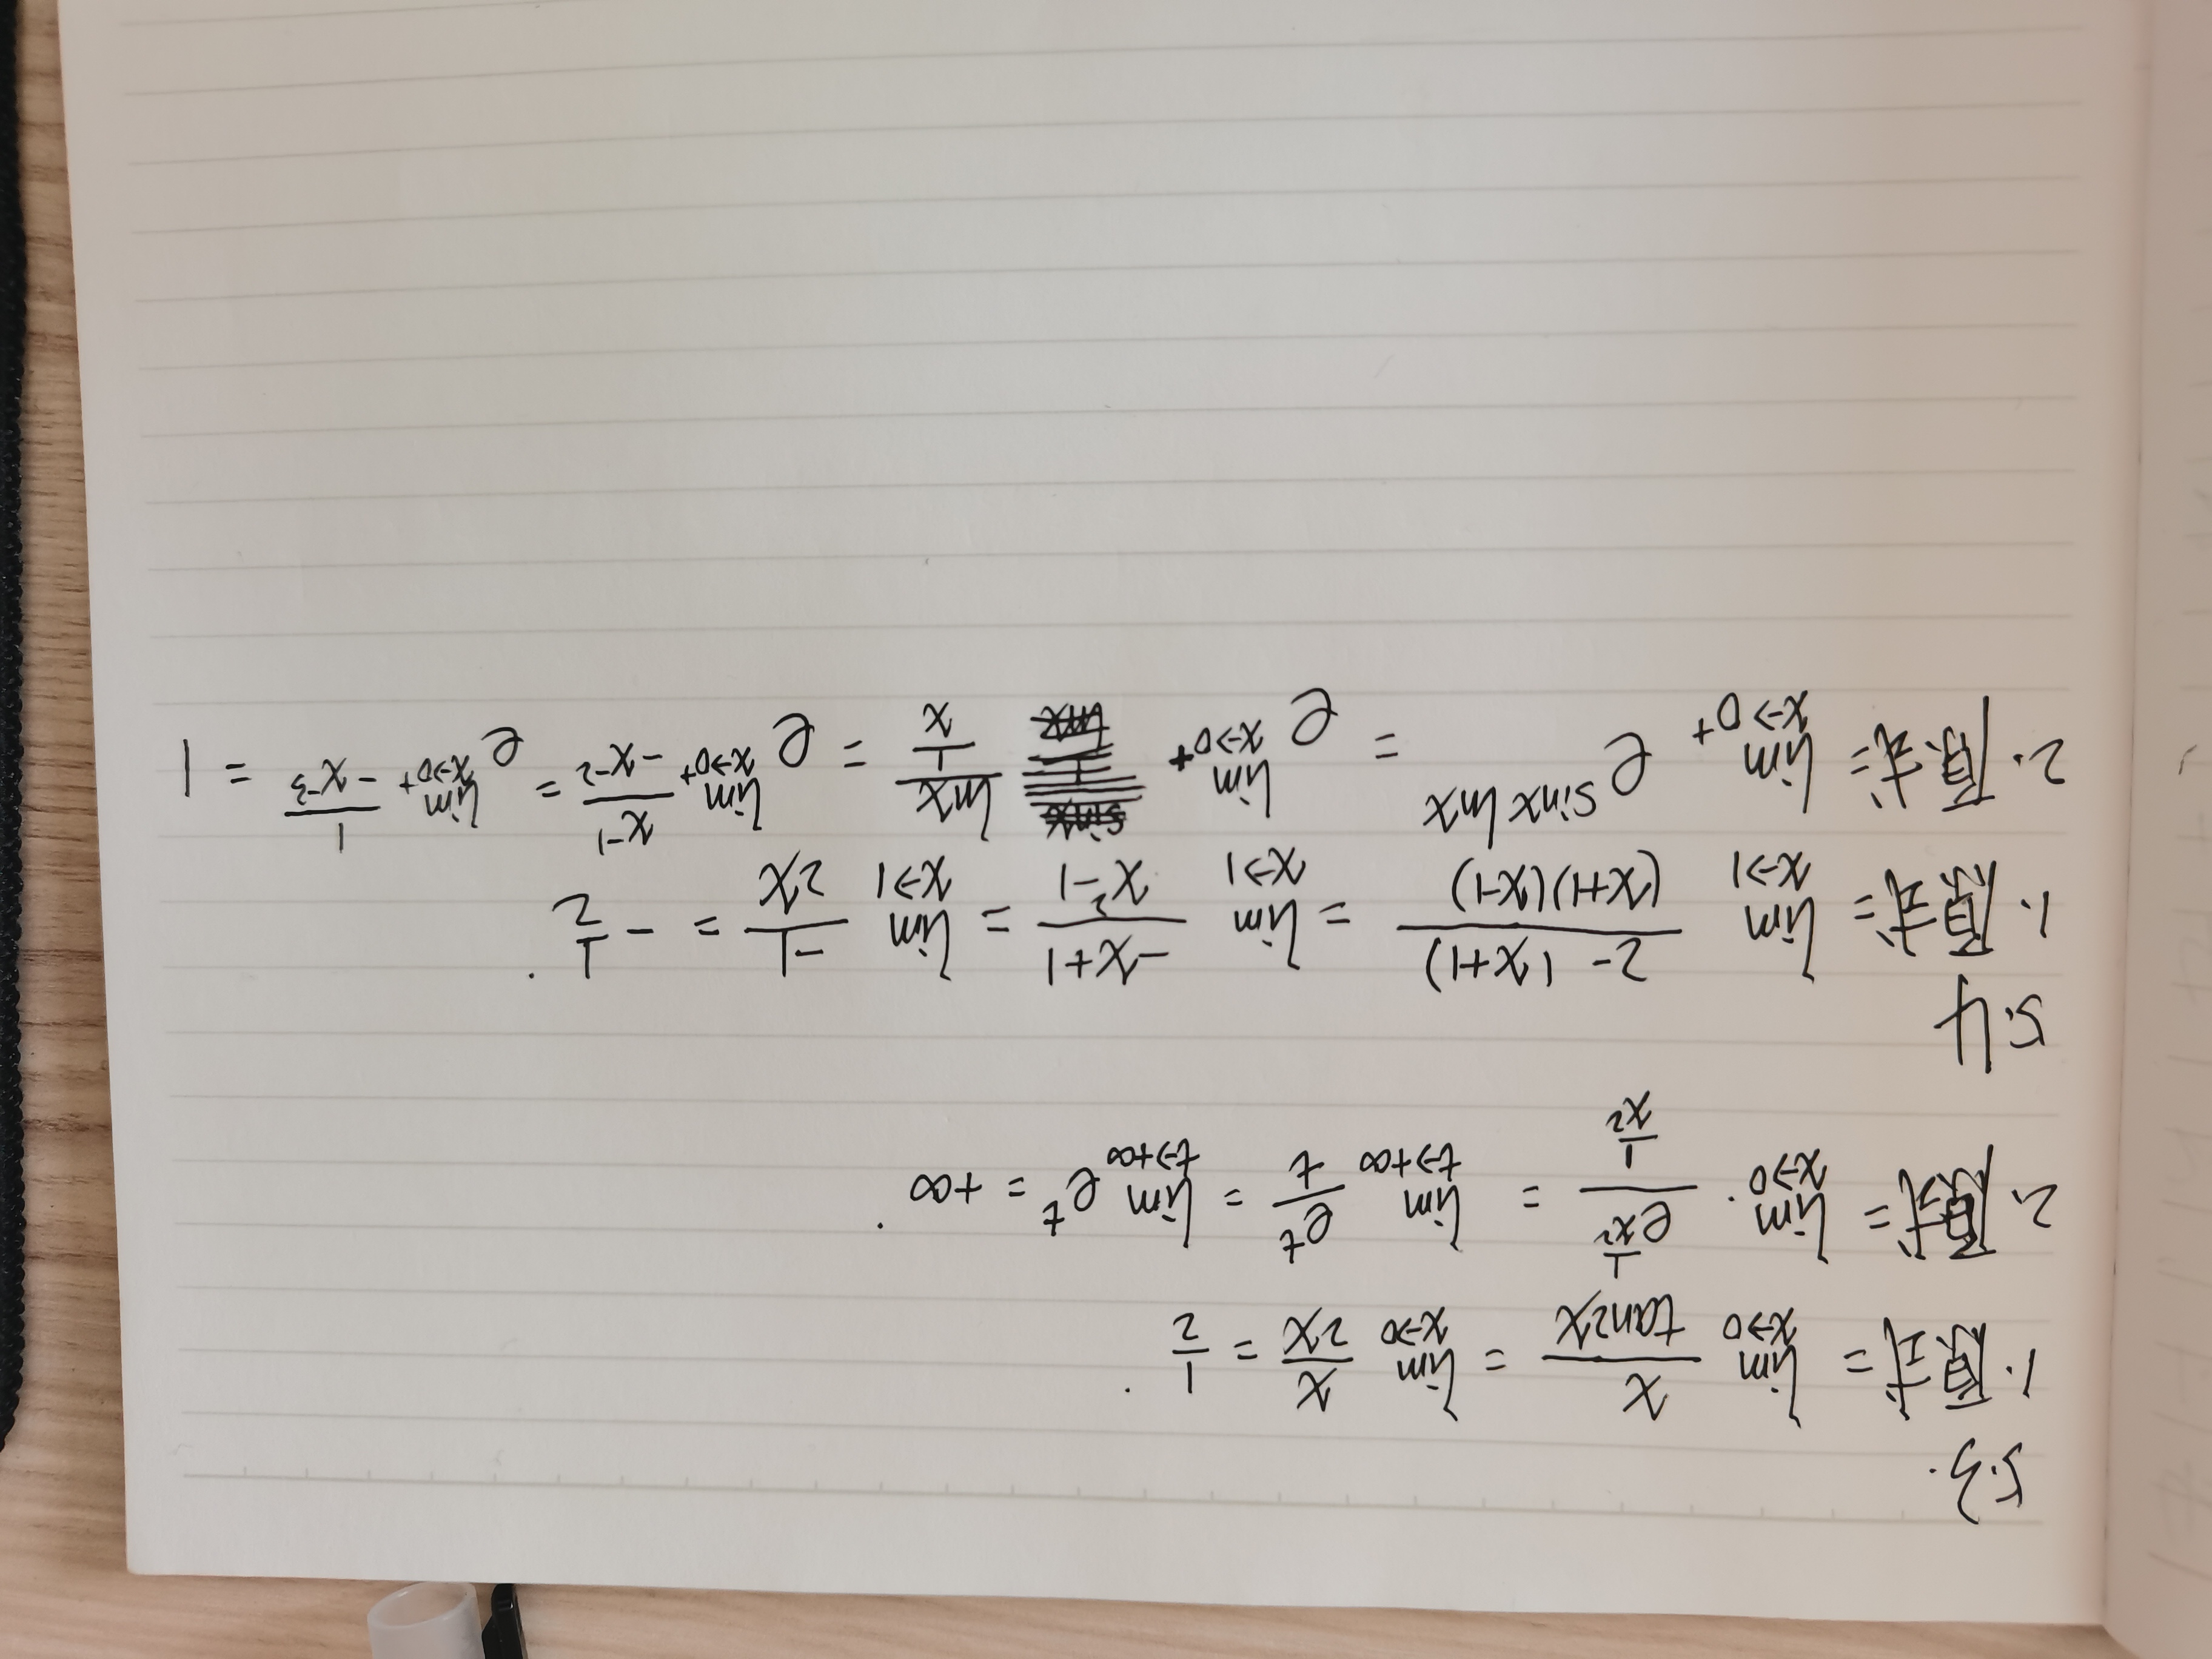 5.3.
1. 原式 = lim_{x→0} x/tan2x = lim_{x→0} x/2x = 1/2
2. 原式 = lim_{x→0} e^{1/x²}/(1/x²) = lim_{t→+∞} e^t/t = lim_{t→+∞} e^t = +∞
5.4
1. 原式 = lim_{x→1} (2-(x+1))/((x+1)(x-1)) = lim_{x→1} (-x+1)/(x²-1) = lim_{x→1} -1/2x = -1/2
2. 原式 = lim_{x→0⁺} e^{sinx lnx} = e^{lim_{x→0⁺} lnx/(1/x)} = e^{lim_{x→0⁺} x^{-1}/-x^{-2}} = e^{lim_{x→0⁺} 1/-x^{-3}} = 1